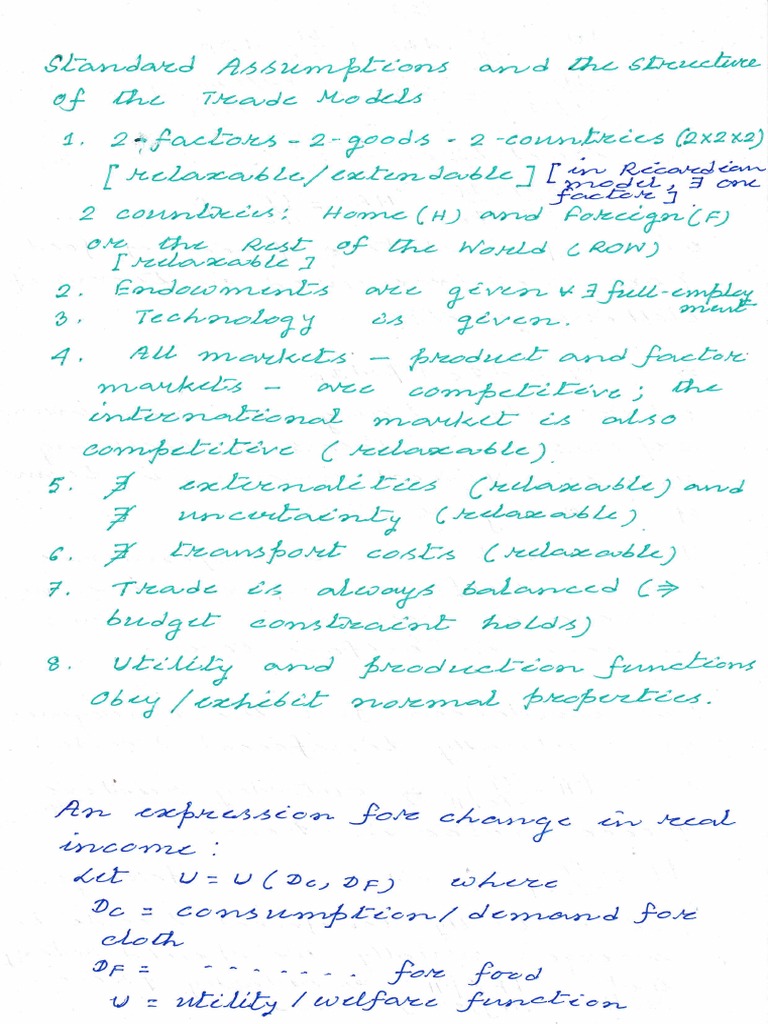 Standard Assumptions and the Structure
of the Trade Models
1. 2-factors - 2-goods - 2-countries (2x2x2)
[relaxable/extendable] [in Ricardian
model, ∃ one
factor].
2 countries: Home (H) and Foreign (F)
or the Rest of the World (ROW)
[relaxable]
2. Endowments are given & ∃ full-employ
ment
3. Technology is given.
4. All markets - product and factor
markets - are competitive; the
international market is also
competitive (relaxable).
5. ∄ externalities (relaxable) and
∄ uncertainty (relaxable).
6. ∄ transport costs (relaxable)
7. Trade is always balanced (⇒
budget constraint holds)
8. Utility and production functions
Obey/exhibit normal properties.
An expression for change in real
income:
Let U = U(DC, DF) where
DC = consumption/demand for
cloth
DF = - - - - - - - - for food
U = utility/welfare function